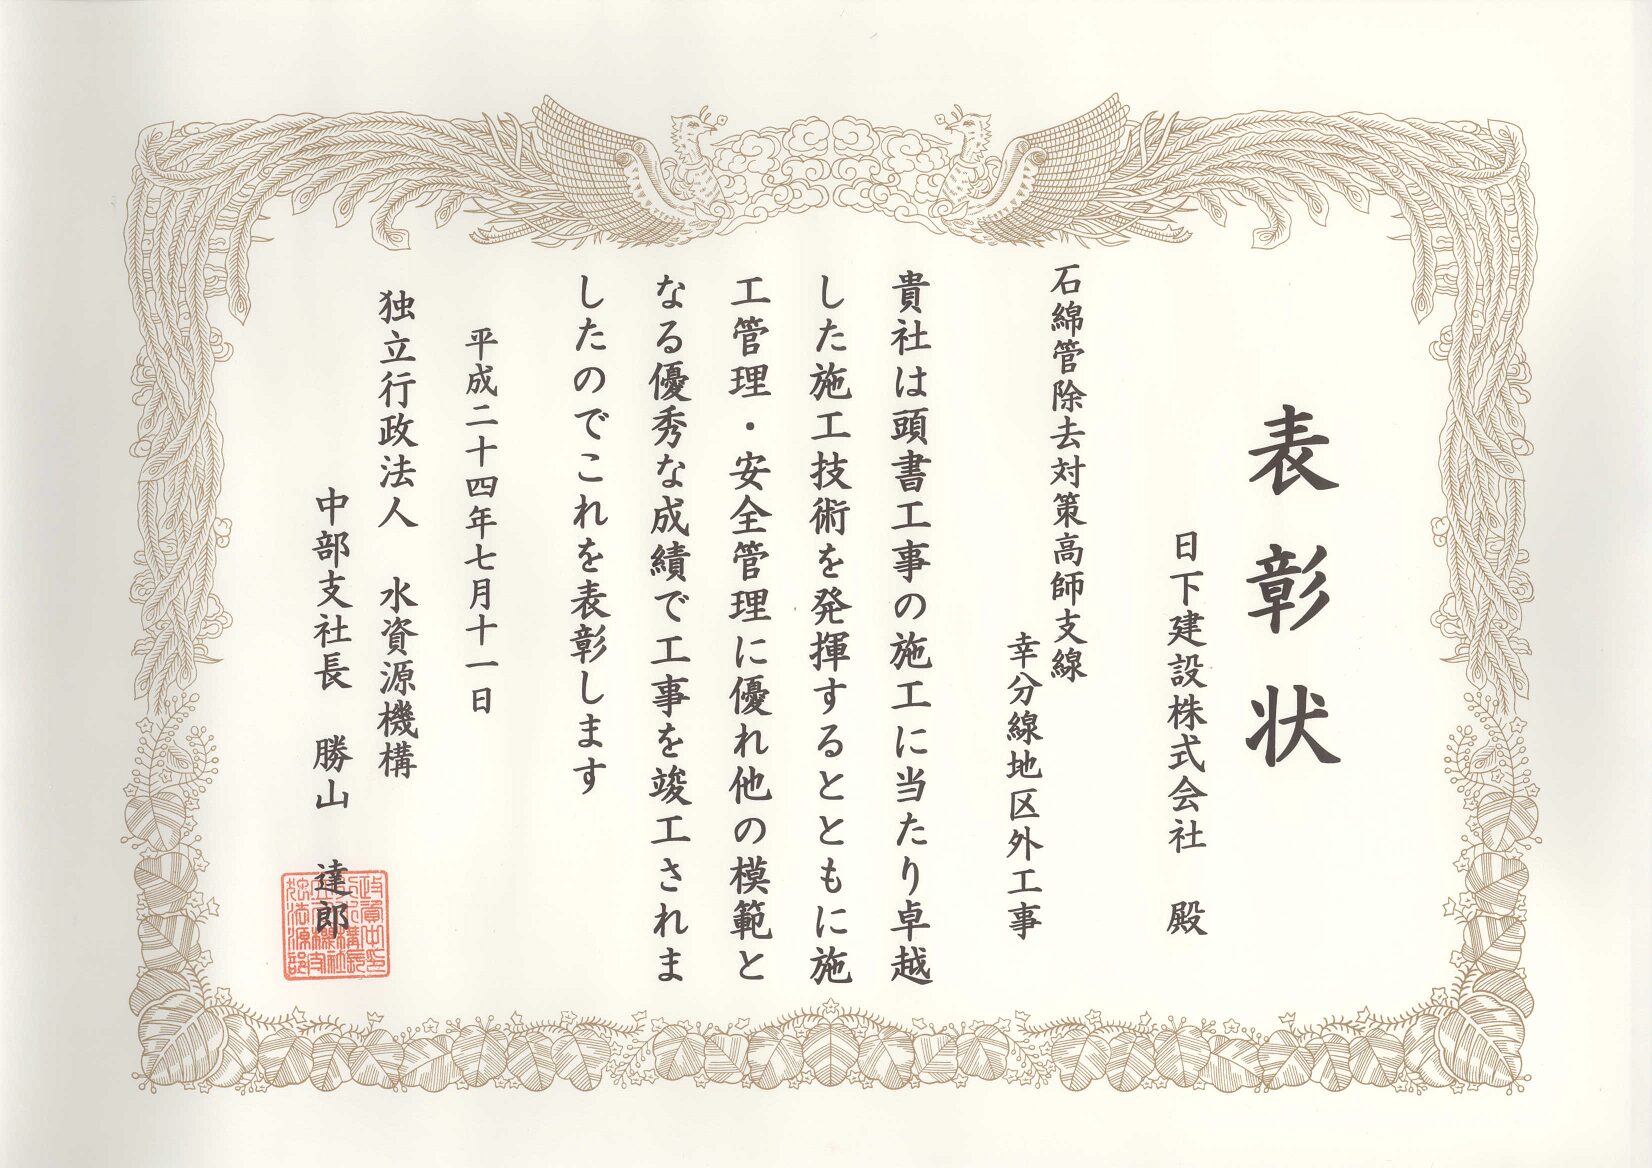 表彰状
日下建設株式会社　殿
石綿管除去対策高師支線
幸分線地区外工事
貴社は頭書工事の施工に当たり卓越
した施工技術を発揮するとともに施
工管理・安全管理に優れ他の模範と
なる優秀な成績で工事を竣工されま
したのでこれを表彰します
平成二十四年七月十一日
独立行政法人　水資源機構
中部支社長　勝山　達郎